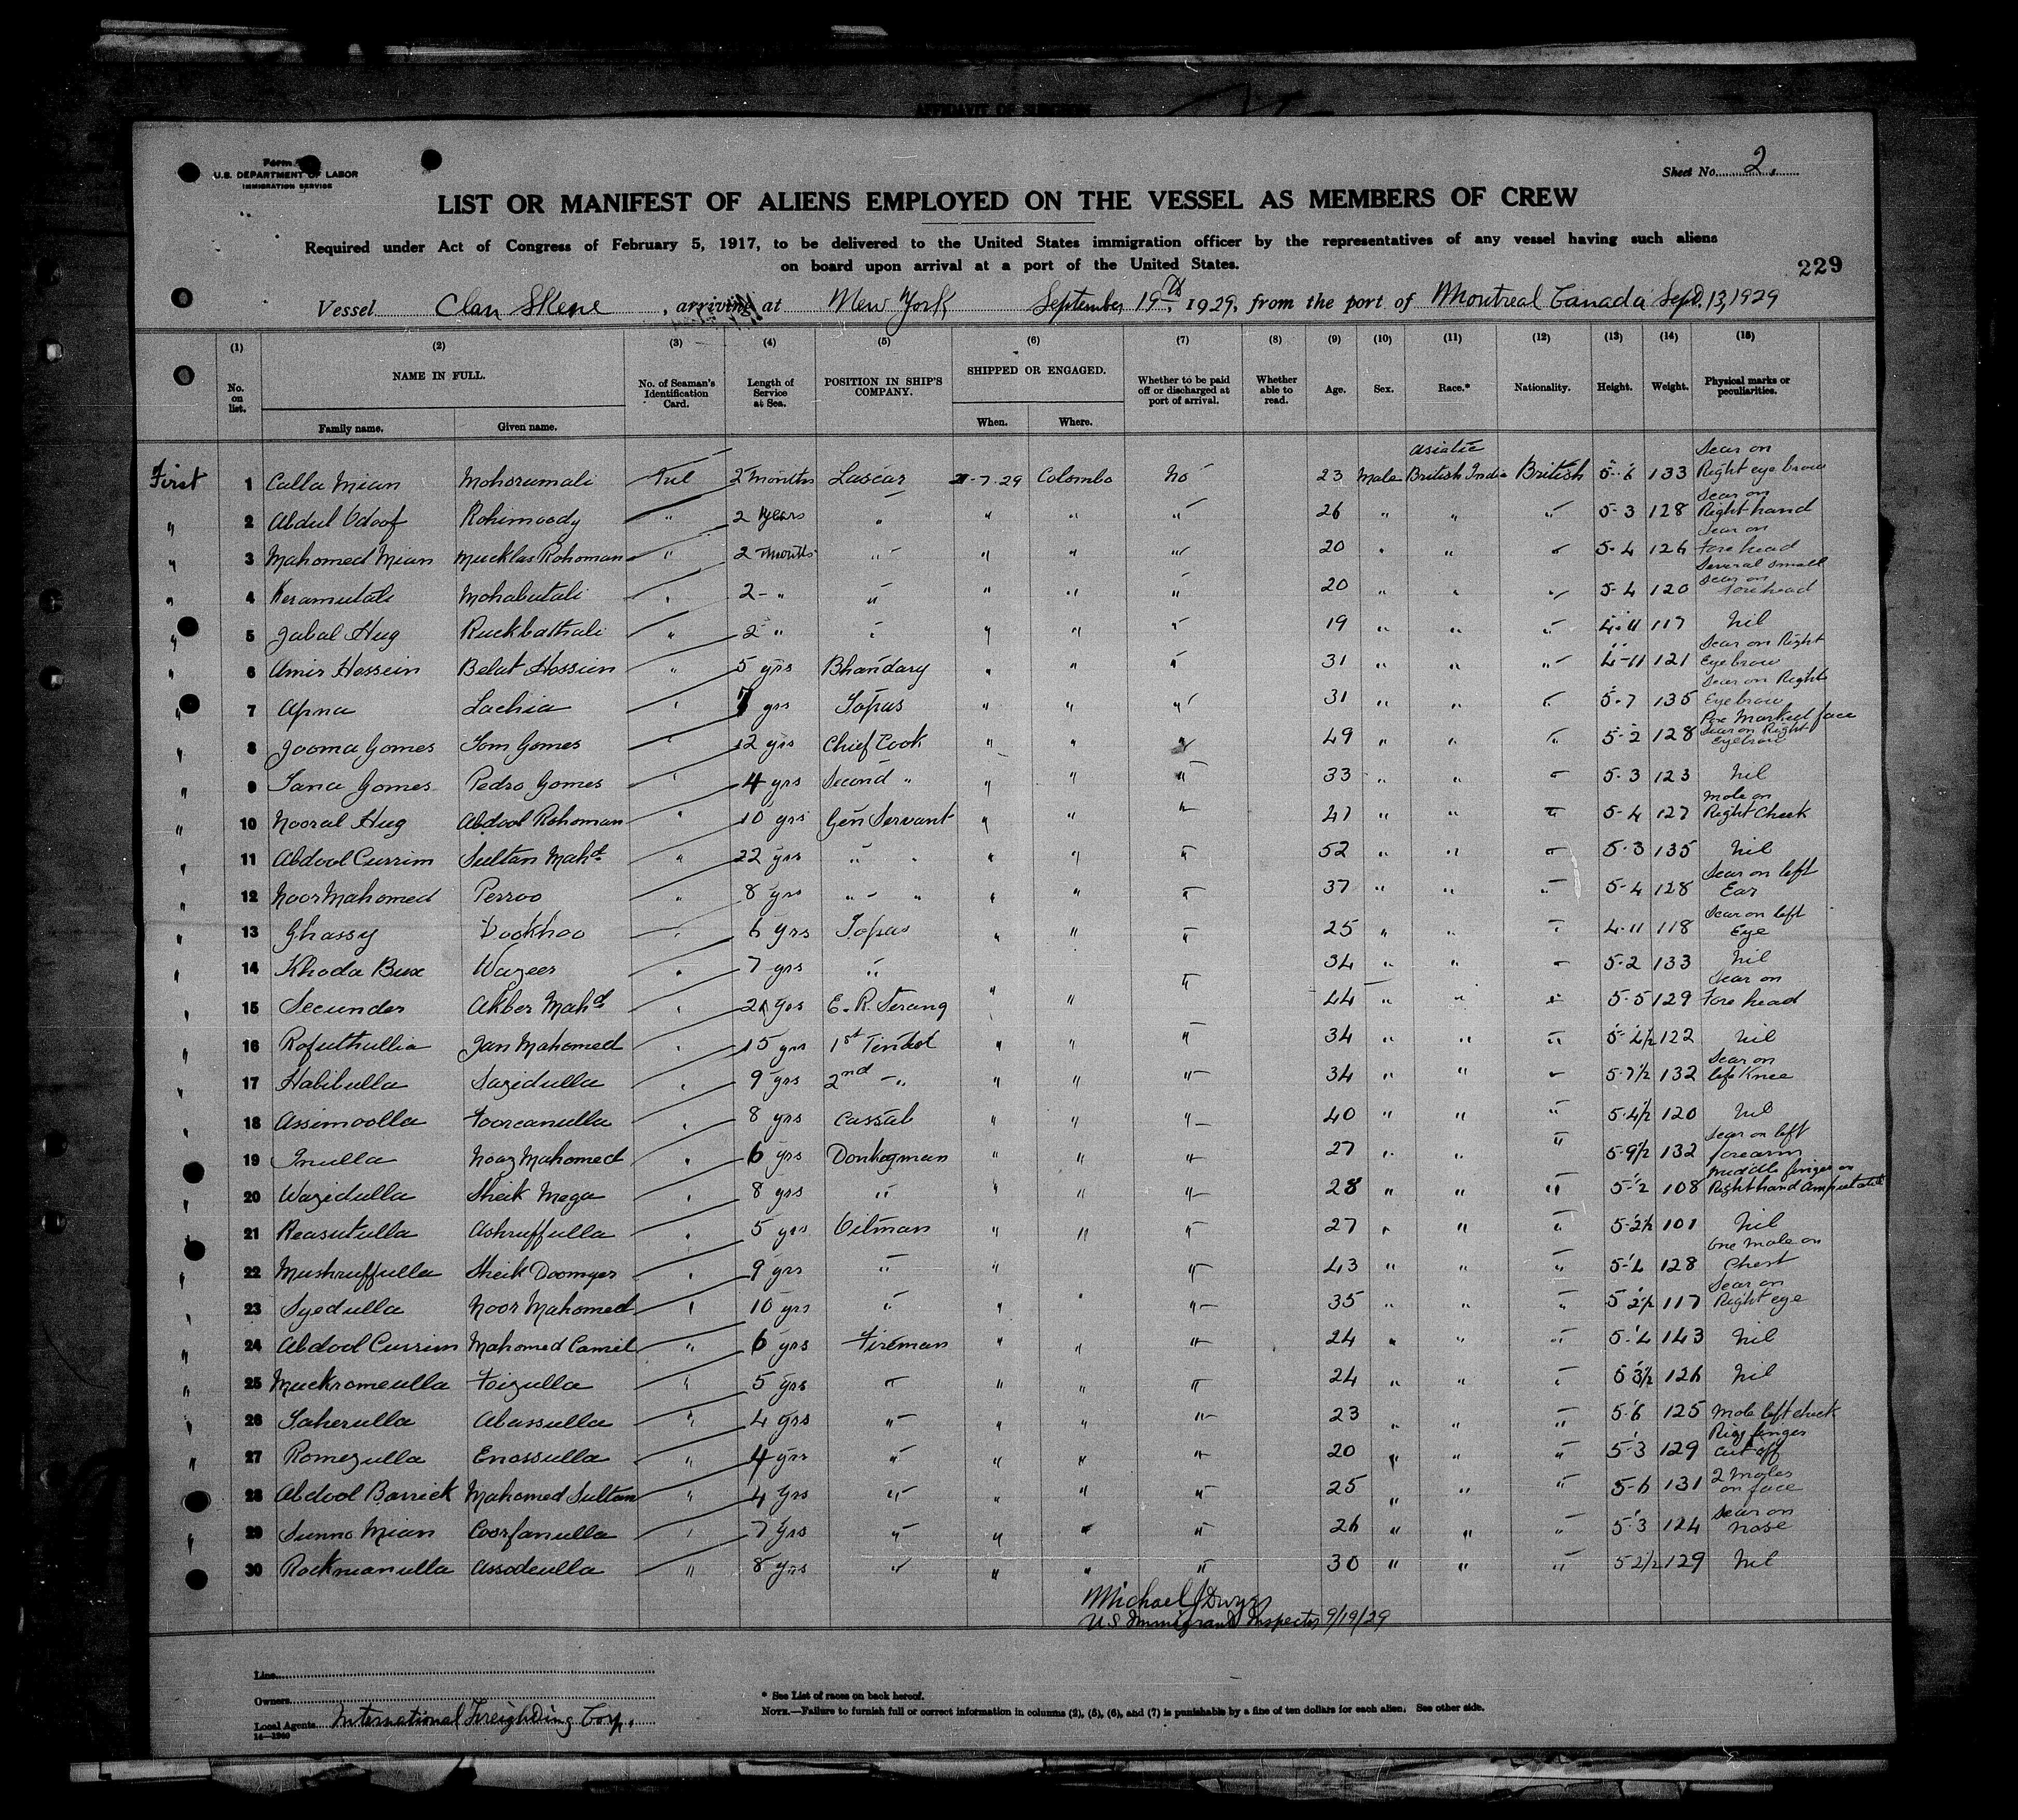 AFFIDAVIT OF SURGEON
Form
U.S. DEPARTMENT OF LABOR
IMMIGRATION SERVICE
Sheet No. 2.
LIST OR MANIFEST OF ALIENS EMPLOYED ON THE VESSEL AS MEMBERS OF CREW
Required under Act of Congress of February 5, 1917, to be delivered to the United States immigration officer by the representatives of any vessel having such aliens
on board upon arrival at a port of the United States.
229
Vessel Clan Skene, arriving at New York September 19th, 1929, from the port of Montreal Canada Sept. 13, 1929
(1) (2) (3) (4) (5) (6) (7) (8) (9) (10) (11) (12) (13) (14) (15)
No. on list. NAME IN FULL. Family name. Given name. No. of Seaman's Identification Card. Length of Service at Sea. POSITION IN SHIP'S COMPANY. SHIPPED OR ENGAGED. When. Where. Whether to be paid off or discharged at port of arrival. Whether able to read. Age. Sex. Race.* Nationality. Height. Weight. Physical marks or peculiarities.
First 1 Calla Mian Mohorumali Nil 2 months Lascar 21-7-29 Colombo No 23 Male Asiatic British India British 5-6 133 Scar on Right eye brow
" 2 Abdul Odoof Rohimoody " 2 years " " " " 26 " " " 5-3 128 Scar on Right hand
" 3 Mahomed Mian Mucklas Rohoman " 2 months " " " " 20 " " " 5-4 126 Scar on Fore head
" 4 Keramutali Mohabutali " 2 " " " " " 20 " " " 5-4 120 Several small scar on forehead
" 5 Jabal Hug Ruckbathali " 2 " " " " " 19 " " " 4-11 117 Nil
" 6 Amir Hossein Belat Hossein " 5 yrs Bhandary " " " 31 " " " 4-11 121 Scar on Right Eyebrow
" 7 Apna Lachia " 7 yrs Topas " " " 31 " " " 5-7 135 Scar on Right Eyebrow
" 8 Jooma Gomes Tom Gomes " 12 yrs Chief Cook " " " 49 " " " 5-2 128 Pox Marked face Scar on Right Eyebrow
" 9 Sana Gomes Pedro Gomes " 4 yrs Second " " " " 33 " " " 5-3 123 Nil
" 10 Nooral Hug Abdool Rohoman " 10 yrs Gen Servant " " " 47 " " " 5-4 127 mole on Right Cheek
" 11 Abdool Currim Sultan Mahd " 22 yrs " " " " " 52 " " " 5-3 135 Nil
" 12 Noor Mahomed Perroo " 8 yrs " " " " " 37 " " " 5-4 128 Scar on left Ear
" 13 Ghassy Dookhoo " 6 yrs Topas " " " 25 " " " 4-11 118 Scar on left Eye
" 14 Khoda Bux Wazeer " 7 yrs " " 34 " " " 5-2 133 Nil
" 15 Secunder Akber Mahd " 21 yrs E. R. Serang " " " 44 " " " 5-5 129 Scar on Fore head
" 16 Rofuthullia Jan Mahomed " 15 yrs 1st Tindal " " " 34 " " " 5-4½ 122 Nil
" 17 Habibulla Sazidulla " 9 yrs 2nd " " " " 34 " " " 5-7½ 132 Scar on left Knee
" 18 Assimoolla Fooreanulla " 8 yrs Cassab " " " 40 " " " 5-4½ 120 Nil
" 19 Inulla Noaz Mahomed " 6 yrs Donkeyman " " " 27 " " " 5-9½ 132 Scar on left forearm
" 20 Wazidulla Sheik Mega " 8 yrs " " " " 28 " " " 5-2 108 Middle finger on Right hand Amputated
" 21 Reasutulla Ashruffulla " 5 yrs Oilman " " " 27 " " " 5-2½ 101 Nil
" 22 Mushruffulla Sheik Doomyer " 9 yrs " " " 43 " " " 5-4 128 One mole on Chest
" 23 Syedulla Noor Mahomed " 10 yrs " " " " 35 " " " 5 2½ 117 Scar on Right eye
" 24 Abdool Currim Mahomed Camiel " 6 yrs Fireman " " " 24 " " " 5-4 143 Nil
" 25 Muckromeulla Foizulla " 5 yrs " " " " 24 " " " 5 3½ 126 Nil
" 26 Saherulla Abassulla " 4 yrs " " " " 23 " " " 5-6 125 Mole left cheek
" 27 Romezulla Enossulla " 4 yrs " " " " 20 " " " 5-3 129 Ring finger cut off
" 28 Abdool Barrick Mahomed Sultan " 4 yrs " " " " 25 " " " 5-6 131 2 Moles on face
" 29 Sunno Mian Coorfanulla " 7 yrs " " " " 26 " " " 5-3 124 Scar on nose
" 30 Rockmanulla Assodeulla " 8 yrs " " " " 30 " " " 5 2½ 129 Nil
Michael J Dwyer
US Immigrant Inspector 9/19/29
Line
Owners
Local Agents International Freighting Corp.
14—1940
* See List of races on back hereof.
NOTE.—Failure to furnish full or correct information in columns (2), (5), (6), and (7) is punishable by a fine of ten dollars for each alien. See other side.